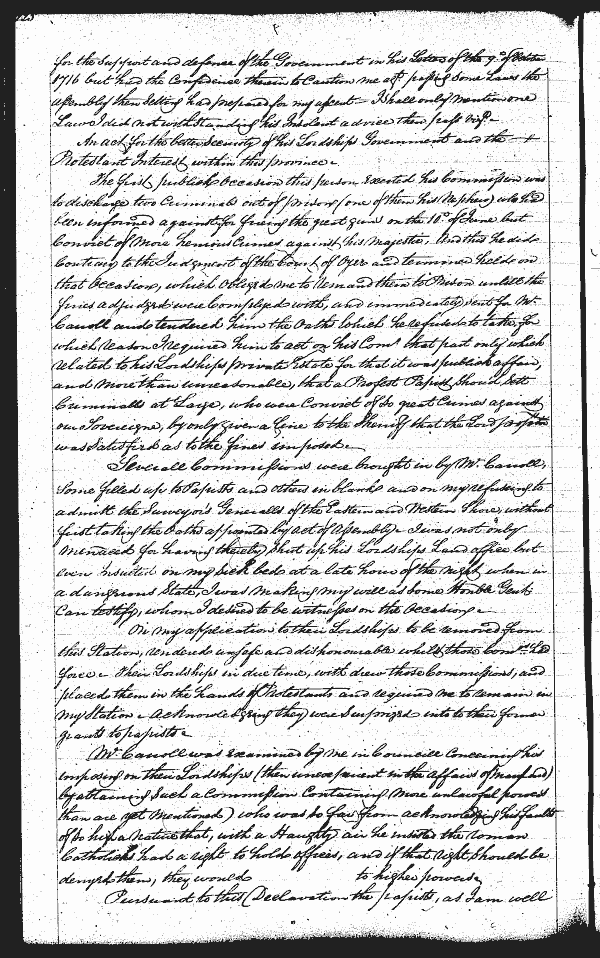 for the support and defence of the Government in his Letter of the 9th of
1716 but had the Confidence therein to Caution me agt passing Some Laws the
Assembly then Sitting had prepared for my assent - I shall only mention one
Law I did not withstanding his Insolent advice then pass vizt -
An act for the better Security of his Lordships Government and the
Protestant Interest within this province -
The first publick Occasion this person Exerted his Commission was
to discharge two Criminals out of prison (one of them his Nephew) who had
been informed against for fireing the great guns on the 10th of June but
Convict of More heinous Crimes against his Majestie, And this he did
Contrary to the Judgment of the Court of Oyer and terminer held on
that Occasion, which Obliged me to remand them to Prison untill the
fines adjudged were Complyed with, and immediately sent for Mr
Carroll and tendered him the Oaths which he refused to take, for
which reason I require him to act on his Comn that part only which
related to his Lordships private Estate for that it was publick affair,
and More than unreasonable, that a Profest Papist Should Sett
Criminalls at Large, who were Convict of So great Crimes against
our Sovereigne, by only given a Line to the Sheriff that the Lord prop
was Satisfied as to the fines imposed -
Severall Commissions were brought in by Mr Carroll,
Some filled up to Papists and others in blank and on my refusing to
admitt the Surveyors Generalls of the Eastern and Western Shore, without
first taking the Oaths appointed by act of Assembly - I was not only
Menaced for having thereby Shut up his Lordships Land office but
even insulted on my Sick bed at a late hour of the night when in
a dangerous State, I was Making my will as Some Honble Gent:
Can testify, whom I desired to be witnesses on the Occasion -
On my application to their Lordships to be removed from
this Station, rendered unsafe and dishonourable whilst those Comns had
force - Their Lordships in due time, with drew those Commissions, and
placed them in the hands of Protestants and required me to remain in
my Station - Acknowledging they were Surprized into their former
grants to papists -
Mr Carroll was examined by me in Councill Concerning his
imposing on their Lordships (then unexperienct in the Affairs of Maryland)
by attaining Such a Commission Containing More unlawful powers
than are yet Mentioned) who was so far from acknowledging his faults
of So high a Nature that, with a Haughty air he insisted the Roman
Catholicks had a right to hold offices, and if that right Should be
denyed them, they would to higher powers
Pursuant to this Declaration the papists, as I am well